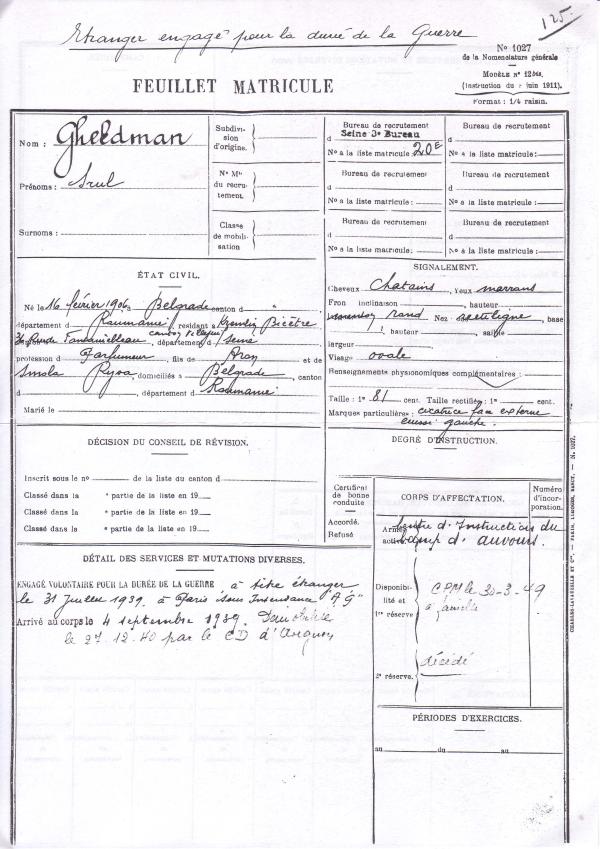 125.
Etranger engagé pour la durée de la Guerre
No 1027
de la Nomenclature générale
FEUILLET MATRICULE
MODÈLE No 12 bis.
(Instruction du juin 1911).
Format: 1/4 raisin.
Nom: Gheldman
Prénoms: Srul
Surnoms:
Subdivision d'origine.
No Mle du recrutement.
Classe de mobilisation
Bureau de recrutement
d Seine 3e Bureau
No à la liste matricule: 20E
Bureau de recrutement
d
No à la liste matricule:
Bureau de recrutement
d
No à la liste matricule:
Bureau de recrutement
d
No à la liste matricule:
Bureau de recrutement
d
No à la liste matricule:
Bureau de recrutement
d
No à la liste matricule:
ÉTAT CIVIL.
Né le 16 février 1906 à Belgrade canton "
département d Roumanie, résidant à Kremlin Bicêtre
canton Villejuif, département d Seine
profession d Parfumeur, fils de Aron et de
domiciliés à Belgrade, canton
d, département d Roumanie
Marié le
SIGNALEMENT.
Cheveux Chatains, Yeux marrons
Fron inclinaison, hauteur
Nez: rectiligne, base
hauteur, saillie
largeur
Visage ovale
Renseignements physionomiques complémentaires:
Taille: 1m 81 cent. Taille rectifiée: 1m cent.
Marques particulières: cicatrice face externe
cuisse gauche.
DÉCISION DU CONSEIL DE RÉVISION.
Inscrit sous le no de la liste du canton d
Classé dans la e partie de la liste en 19
Classé dans la e partie de la liste en 19
Classé dans la e partie de la liste en 19
DEGRÉ D'INSTRUCTION.
Certificat de bonne conduite
Accordé.
Refusé
CORPS D'AFFECTATION.
Numéro d'incorporation.
Armée active Centre d'Instruction du
camp d'auvours.
Disponibilité et 1re réserve
le 30-3-49
décédé
2e réserve.
DÉTAIL DES SERVICES ET MUTATIONS DIVERSES.
ENGAGÉ VOLONTAIRE POUR LA DURÉE DE LA GUERRE à titre étranger
le 31 Juillet 1939 à Paris sous Intendance "AG"
Arrivé au corps le 4 septembre 1939. Démobilisé
le 27.12.40 par le CD d'Avignon
PÉRIODES D'EXERCICES.
au du au
CHARLES-LAVAUZELLE ET Cie. — PARIS, LIMOGES, NANCY. — N. 1027.